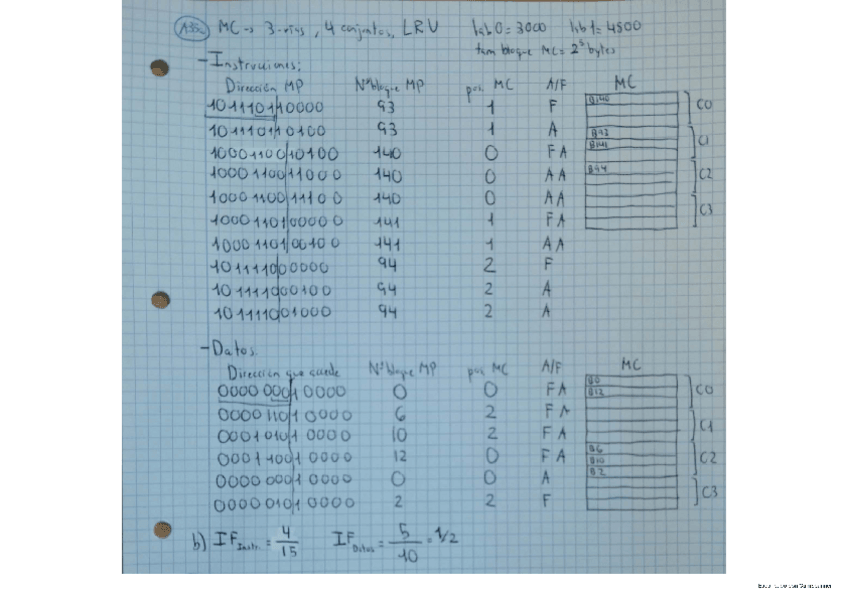 A35. MC → 3-vías, 4 conjuntos, LRU lab0 = 3000 lab1 = 4500
tam bloque MC = 2⁵ bytes
- Instrucciones:
Dirección MP NºBloque MP pos. MC A/F MC
101110110000 93 1 F B140 C0
101110110100 93 1 A B93 C1
100011001 0100 140 0 F A B141
100011001 1000 140 0 A A B94 C2
100011001 1100 140 0 A A
100011010 0000 141 1 F A C3
100011010 0100 141 1 A A
101111000000 94 2 F
101111000100 94 2 A
101111001000 94 2 A
- Datos
Dirección que quede NºBloque MP pos MC A/F MC
0000 0001 0000 0 0 F A B0 B12 C0
0000 1101 0000 6 2 F A
0001 0101 0000 10 2 F A C1
0001 1001 0000 12 0 F A B6 B10 C2
0000 0001 0000 0 0 A B2
0000 0101 0000 2 2 F C3
b) IF Instr. = 4/15 IF Datos = 5/10 = 1/2